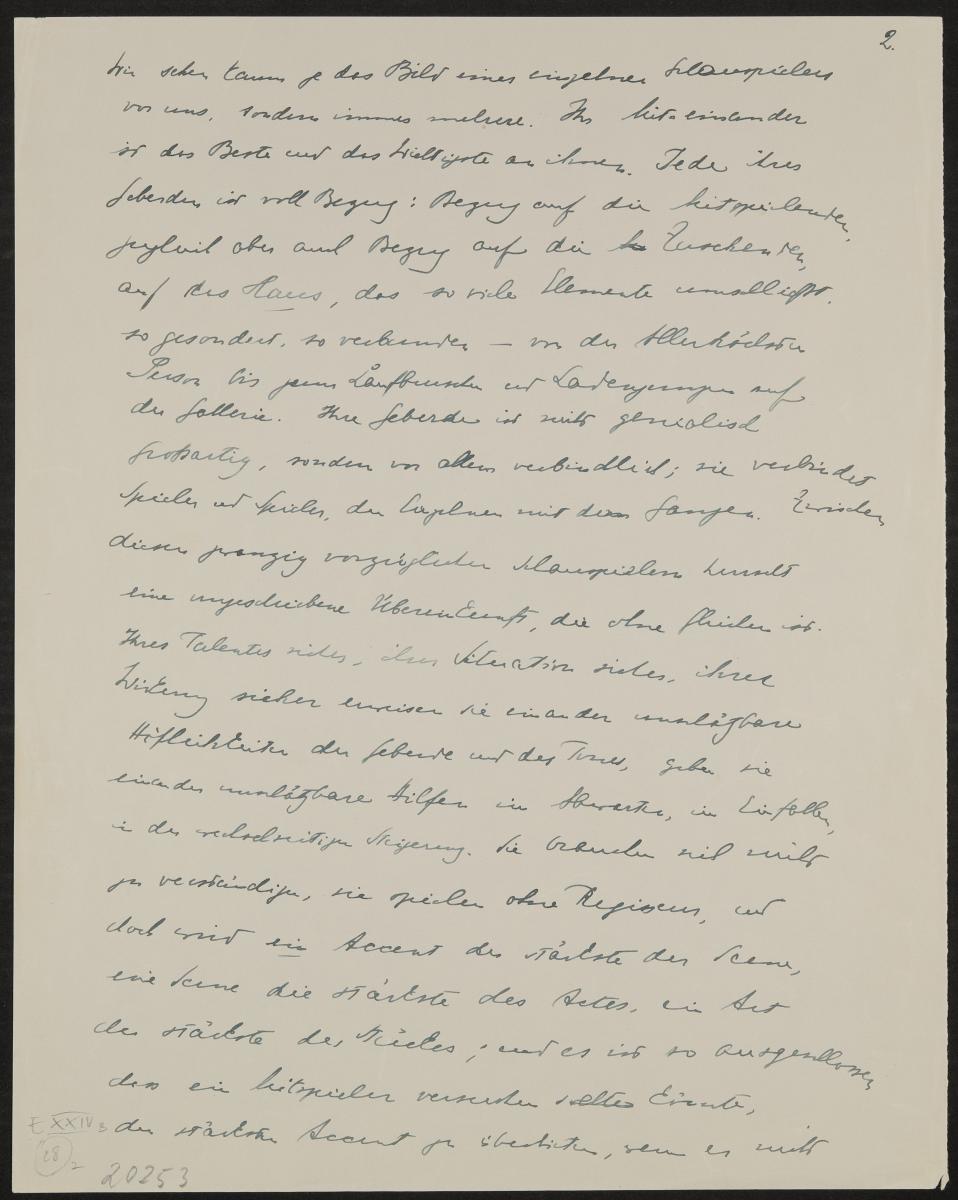 2.
Wir sehen kaum je das Bild eines einzelnen Schauspielers
vor uns, sondern immer mehrere. Ihr Miteinander
ist das Beste und das Wichtigste an ihnen. Jede ihrer
Geberden ist voll Bezug: Bezug auf die Mitspielenden,
zugleich aber auch Bezug auf die Zusehenden,
auf das Haus, das so viele Elemente umschließt,
so gesondert, so verbunden — von der Allerhöchsten
Person bis zum Laufburschen und Ladenjungen auf
der Gallerie. Ihre Geberde ist nicht genialisch
großartig, sondern vor allem verbindlich; sie verbindet
Spieler und Spieler, den Einzelnen mit dem Ganzen. Zwischen
diesen zwanzig vorzüglichen Schauspielern herrscht
eine ungeschriebene Übereinkunft, die ohne Gleichen ist.
Ihres Talentes sicher, ihrer Situation sicher, ihrer
Wirkung sicher erweisen sie einander unschätzbare
Höflichkeiten der Geberde und des Tones, geben sie
einander unschätzbare Hilfen im Abwarten, im Einfallen,
in der wechselseitigen Steigerung. Sie brauchen sich nicht
zu verständigen, sie spielen ohne Regisseur, und
doch wird ein Accent der stärkste der Scene,
eine Scene die stärkste des Actes, ein Act
der stärkste des Stückes; und es ist so ausgeschlossen
dass ein Mitspieler versuchen könnte,
den stärksten Accent zu überbieten, wenn er nicht
E XXIV 3
28 2
20253